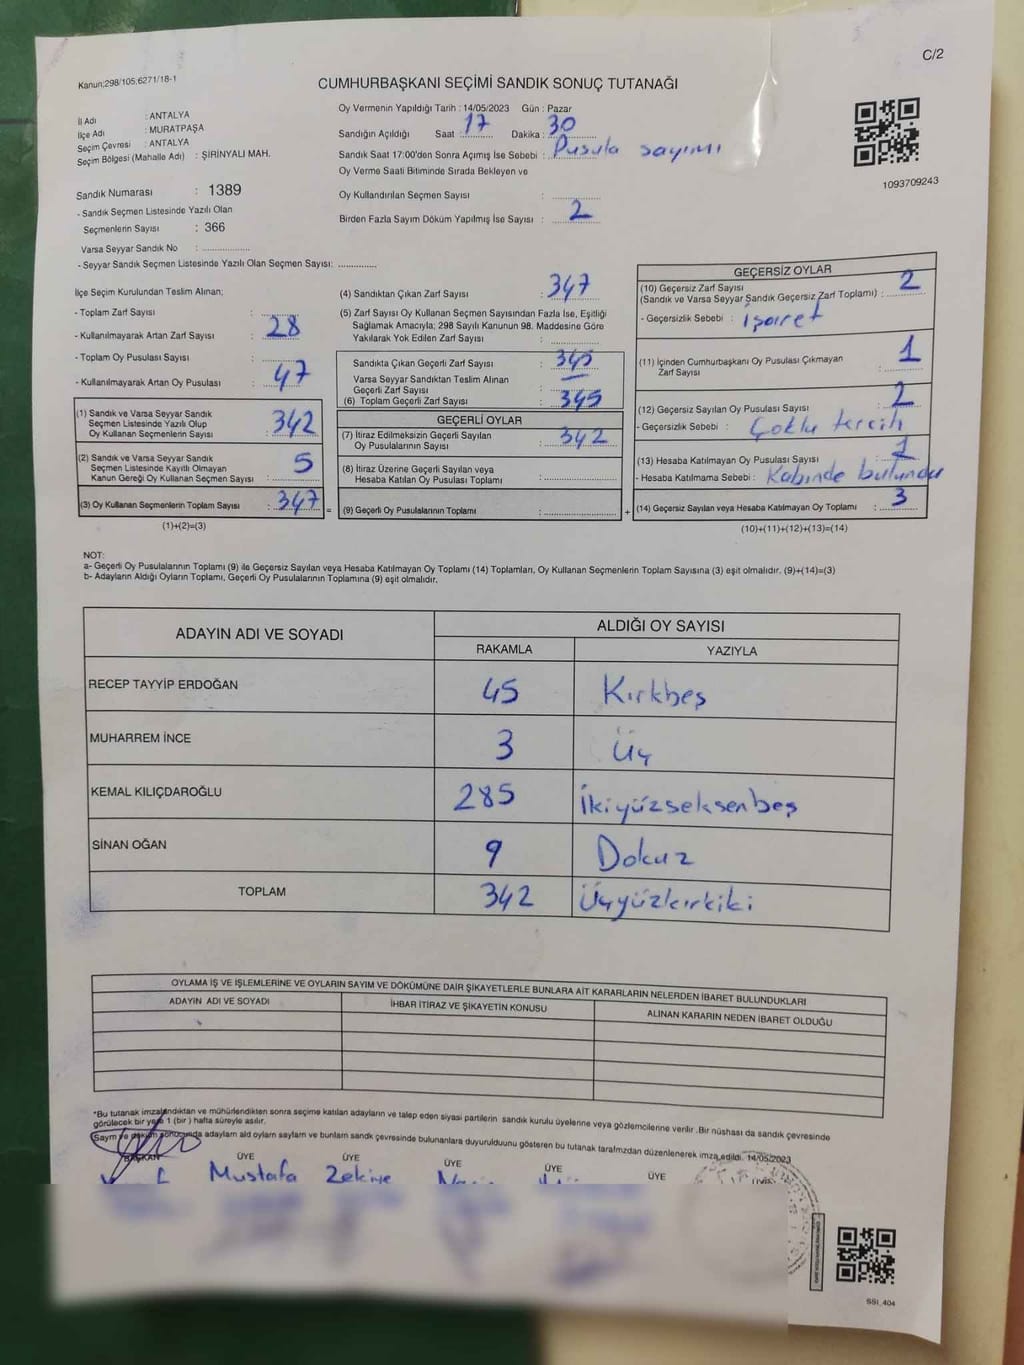 C/2
Kanun;298/105;6271/18-1
CUMHURBAŞKANI SEÇİMİ SANDIK SONUÇ TUTANAĞI
İl Adı : ANTALYA
İlçe Adı : MURATPAŞA
Seçim Çevresi : ANTALYA
Seçim Bölgesi (Mahalle Adı) : ŞİRİNYALI MAH.
Oy Vermenin Yapıldığı Tarih : 14/05/2023 Gün : Pazar
Sandığın Açıldığı Saat : 17 Dakika : 30
Sandık Saat 17:00'den Sonra Açımış İse Sebebi : Pusula sayımı
Oy Verme Saati Bitiminde Sırada Bekleyen ve
Oy Kullandırılan Seçmen Sayısı :
Birden Fazla Sayım Döküm Yapılmış İse Sayısı : 2
1093709243
Sandık Numarası : 1389
- Sandık Seçmen Listesinde Yazılı Olan
Seçmenlerin Sayısı : 366
Varsa Seyyar Sandık No :
- Seyyar Sandık Seçmen Listesinde Yazılı Olan Seçmen Sayısı:
İlçe Seçim Kurulundan Teslim Alınan;
- Toplam Zarf Sayısı :
- Kullanılmayarak Artan Zarf Sayısı : 28
- Toplam Oy Pusulası Sayısı :
- Kullanılmayarak Artan Oy Pusulası : 47
(1) Sandık ve Varsa Seyyar Sandık
Seçmen Listesinde Yazılı Olup
Oy Kullanan Seçmenlerin Sayısı : 342
(2) Sandık ve Varsa Seyyar Sandık
Seçmen Listesinde Kayıtlı Olmayan
Kanun Gereği Oy Kullanan Seçmen Sayısı : 5
(3) Oy Kullanan Seçmenlerin Toplam Sayısı : 347
(1)+(2)=(3)
(4) Sandıktan Çıkan Zarf Sayısı : 347
(5) Zarf Sayısı Oy Kullanan Seçmen Sayısından Fazla İse, Eşitliği
Sağlamak Amacıyla; 298 Sayılı Kanunun 98. Maddesine Göre
Yakılarak Yok Edilen Zarf Sayısı :
Sandıkta Çıkan Geçerli Zarf Sayısı : 345
Varsa Seyyar Sandıktan Teslim Alınan
Geçerli Zarf Sayısı :
(6) Toplam Geçerli Zarf Sayısı : 345
GEÇERLİ OYLAR
(7) İtiraz Edilmeksizin Geçerli Sayılan
Oy Pusulalarının Sayısı : 342
(8) İtiraz Üzerine Geçerli Sayılan veya
Hesaba Katılan Oy Pusulaları Toplamı :
= (9) Geçerli Oy Pusulalarının Toplamı : +
GEÇERSİZ OYLAR
(10) Geçersiz Zarf Sayısı
(Sandık ve Varsa Seyyar Sandık Geçersiz Zarf Toplamı) : 2
- Geçersizlik Sebebi : işaret
(11) İçinden Cumhurbaşkanı Oy Pusulası Çıkmayan
Zarf Sayısı : 1
(12) Geçersiz Sayılan Oy Pusulası Sayısı : 2
- Geçersizlik Sebebi : Çoklu tercih
(13) Hesaba Katılmayan Oy Pusulası Sayısı : 1
- Hesaba Katılmama Sebebi : Kabinde bulundu
(14) Geçersiz Sayılan veya Hesaba Katılmayan Oy Toplamı : 3
(10)+(11)+(12)+(13)=(14)
NOT:
a- Geçerli Oy Pusulalarının Toplamı (9) ile Geçersiz Sayılan veya Hesaba Katılmayan Oy Toplamı (14) Toplamları, Oy Kullanan Seçmenlerin Toplam Sayısına (3) eşit olmalıdır. (9)+(14)=(3)
b- Adayların Aldığı Oyların Toplamı, Geçerli Oy Pusulalarının Toplamına (9) eşit olmalıdır.
ADAYIN ADI VE SOYADI ALDIĞI OY SAYISI
RAKAMLA YAZIYLA
RECEP TAYYİP ERDOĞAN 45 Kırkbeş
MUHARREM İNCE 3 Üç
KEMAL KILIÇDAROĞLU 285 İkiyüzseksenbeş
SİNAN OĞAN 9 Dokuz
TOPLAM 342 Üçyüzkırkiki
OYLAMA İŞ VE İŞLEMLERİNE VE OYLARIN SAYIM VE DÖKÜMÜNE DAİR ŞİKAYETLERLE BUNLARA AİT KARARLARIN NELERDEN İBARET BULUNDUKLARI
ADAYIN ADI VE SOYADI İHBAR İTİRAZ VE ŞİKAYETİN KONUSU ALINAN KARARIN NEDEN İBARET OLDUĞU
*Bu tutanak imzalandıktan ve mühürlendikten sonra seçime katılan adayların ve talep eden siyasi partilerin sandık kurulu üyelerine veya gözlemcilerine verilir .Bir nüshası da sandık çevresinde
görülecek bir yere 1 (bir ) hafta süreyle asılır.
Sayım ve döküm sonucunda adayların ald oyların sayların ve bunların sandk çevresinde bulunanlara duyurulduunu gösteren bu tutanak tarafmzdan düzenlenerek imza edildi. 14/05/2023
BAŞKAN ÜYE ÜYE ÜYE ÜYE ÜYE
Mustafa Zekiye
SSI_404